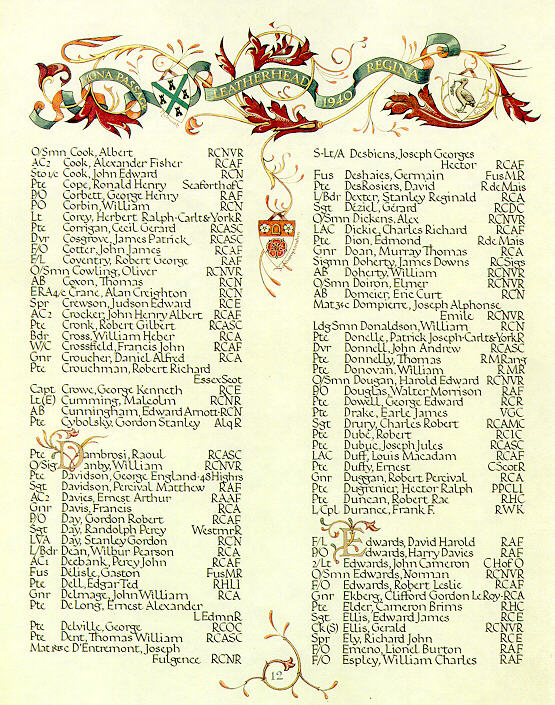 MONA PASSAGE
LEATHERHEAD
1940
REGINA
O/Smn Cook, Albert RCNVR
AC2 Cook, Alexander Fisher RCAF
Sto1/c Cook, John Edward RCN
Pte Cope, Ronald Henry SeaforthofC
P/O Corbett, George Henry RAF
PO Corbin, William RCN
Lt Corey, Herbert Ralph-Carlt&YorkR
Pte Corrigan, Cecil Gerard RCASC
Dvr Cosgrove, James Patrick RCASC
F/O Cotter, John James RAF
F/L Coventry, Robert George RAF
O/Smn Cowling, Oliver RCNVR
AB Coxon, Thomas RCN
ERA4/c Crane, Alan Creighton RCN
Spr Crewson, Judson Edward RCE
AC2 Crocker, John Henry Albert RCAF
Pte Cronk, Robert Gilbert RCASC
Bdr Cross, William Heber RCA
W/C Crossfield, Francis John RCAF
Gnr Croucher, Daniel Alfred RCA
Pte Crouchman, Robert Richard
EssexScot
Capt Crowe, George Kenneth RCE
Lt(E) Cumming, Malcolm RCNR
AB Cunningham, Edward Arnott-RCN
Pte Cybolsky, Gordon Stanley AlqR
Pte Dambrosi, Raoul RCASC
O/Sig Danby, William RCNVR
Pte Davidson, George England-48Highrs
Sgt Davidson, Percival Matthew RAF
AC2 Davies, Ernest Arthur RAAF
Gnr Davis, Francis RCA
P/O Day, Gordon Robert RCAF
Sgt Day, Randolph Percy WestmrR
LVA Day, Stanley Gordon RCN
L/Bdr Dean, Wilbur Pearson RCA
AC1 Deebank, Percy John RCAF
Fus Delisle, Gaston FusMR
Pte Dell, Edgar Ted RHLI
Gnr Delmage, John William RCA
Pte DeLong, Ernest Alexander
LEdmnR
Pte Delville, George RCOC
Pte Dent, Thomas William RCASC
Mat1sse D'Entremont, Joseph
Fulgence RCNR
S-Lt/A Desbiens, Joseph Georges
Hector RCAF
Fus Deshaies, Germain FusMR
Pte DesRosiers, David RdeMais
L/Bdr Dexter, Stanley Reginald RCA
Sgt Déziel, Gérard RCDC
O/Smn Dickens, Alex RCNVR
LAC Dickie, Charles Richard RCAF
Pte Dion, Edmond RdeMais
Gnr Doan, Murray Thomas RCA
Sigmn Doherty, James Downs RCSigs
AB Doherty, William RCNVR
O/Smn Doiron, Elmer RCNVR
AB Domeier, Eric Curt RCN
Mat3sc Dompierre, Joseph Alphonse
Emile RCNVR
LdgSmn Donaldson, William RCN
Pte Donelle, Patrick Joseph-Carlt&YorkR
Dvr Donnell, John Andrew RCASC
Pte Donnelly, Thomas RMRang
Pte Donovan, William RMR
O/Smn Dougan, Harold Edward RCNVR
P/O Douglas, Walter Morrison RAF
Pte Dowell, George Edward RCR
Pte Drake, Earle James VGC
Sgt Drury, Charles Robert RCAMC
Pte Dubé, Robert RCIC
Pte Dubuc, Joseph Jules RCASC
LAC Duff, Louis Macadam RCAF
Pte Duffy, Ernest CScotR
Gnr Duggan, Robert Percival RCA
Pte Dugrenier, Hector Ralph PPCLI
Pte Duncan, Robert Rae RHC
L/Cpl Durance, Frank F. RWK
F/L Edwards, David Harold RAF
P/O Edwards, Harry Davies RAF
2/Lt Edwards, John Cameron CHofO
O/Smn Edwards, Norman RCNVR
F/O Edwards, Robert Leslie RCAF
Gnr Ekberg, Clifford Gordon LeRoy-RCA
Pte Elder, Cameron Brims RHC
Sgt Ellis, Edward James RCE
Ck(S) Ellis, Gerald RCNVR
Spr Ely, Richard John RCE
F/O Emeno, Lionel Burton RAF
F/O Espley, William Charles RAF
12